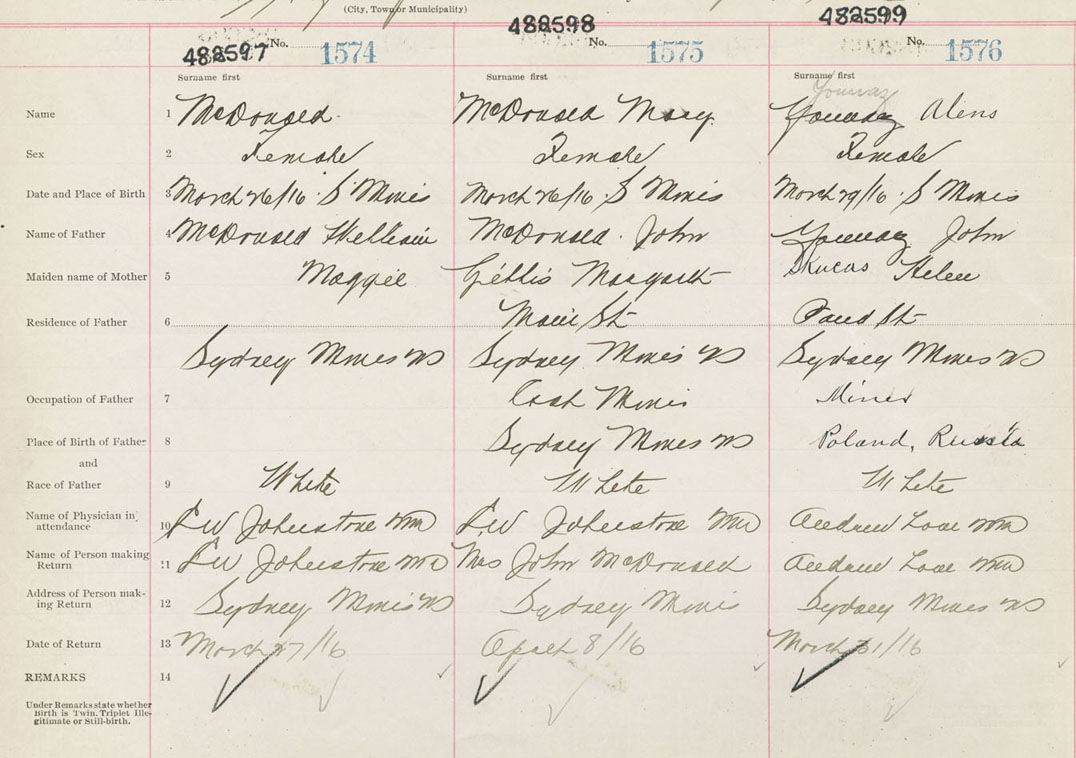 (City, Town or Municipality)
482597 No. 1574 482598 No. 1575 482599 No. 1576
Surname first Surname first Surname first
Youwaz
Name 1 McDonald McDonald Mary Youwaz Alens
Sex 2 Female Female Female
Date and Place of Birth 3 March 26/16 S Mines March 26/16 S Mines March 29/16 S Mines
Name of Father 4 McDonald William McDonald John Youwaz John
Maiden name of Mother 5 Maggie Gillis Margaret Skucas Helen
Residence of Father 6 Main St Pond St
Sydney Mines NS Sydney Mines NS Sydney Mines NS
Occupation of Father 7 Miner
Place of Birth of Father 8 Sydney Mines NS Poland, Russia
and
Race of Father 9 White White White
Name of Physician in attendance 10 LW Johnstone MD LW Johnstone MD Andrew Love MD
Name of Person making Return 11 LW Johnstone MD Mrs John McDonald Andrew Love MD
Address of Person making Return 12 Sydney Mines NS Sydney Mines Sydney Mines NS
Date of Return 13 March 27/16 April 8/16 March 31/16
REMARKS 14
Under Remarks state whether
Birth is Twin, Triplet Ille-
gitimate or Still-birth.